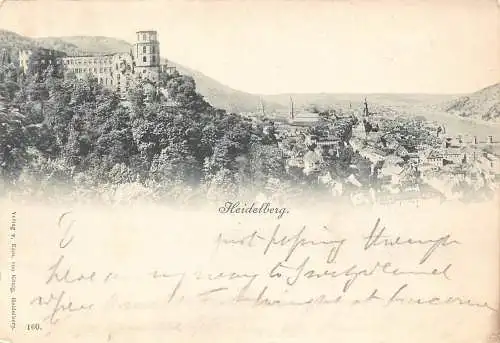 Heidelberg.
just passing through
here on my way to Switzerland
when
at Lucerne
Verlag v. Edm. von König, Heidelberg.
160.